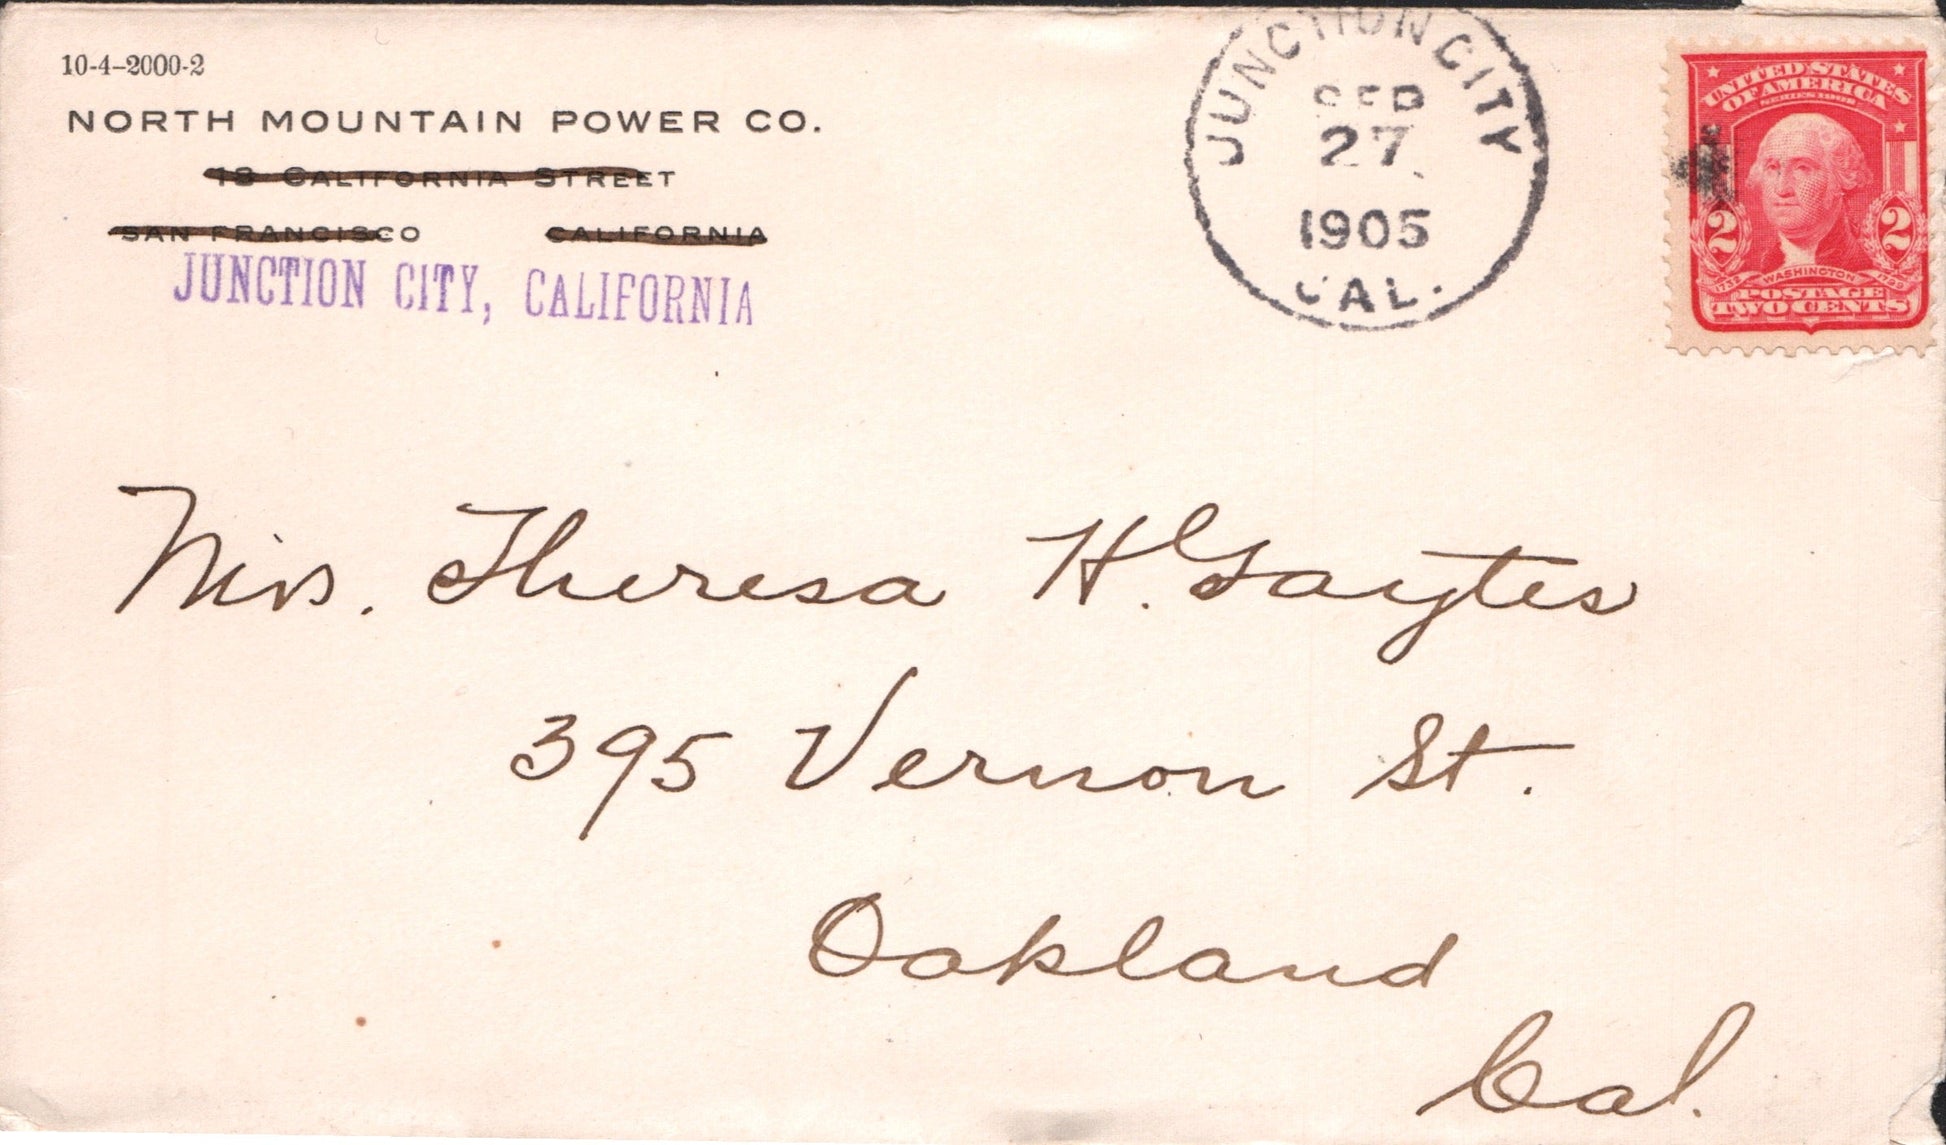 10-4-2000-2
NORTH MOUNTAIN POWER CO.
18 CALIFORNIA STREET
SAN FRANCISCO CALIFORNIA
JUNCTION CITY, CALIFORNIA
JUNCTION CITY
SEP
27
1905
CAL.
UNITED STATES
OF AMERICA
SERIES 1902
2 2
1732 WASHINGTON 1799
POSTAGE
TWO CENTS
Miss. Theresa H. Gaytes
395 Vernon St.
Oakland
Cal.